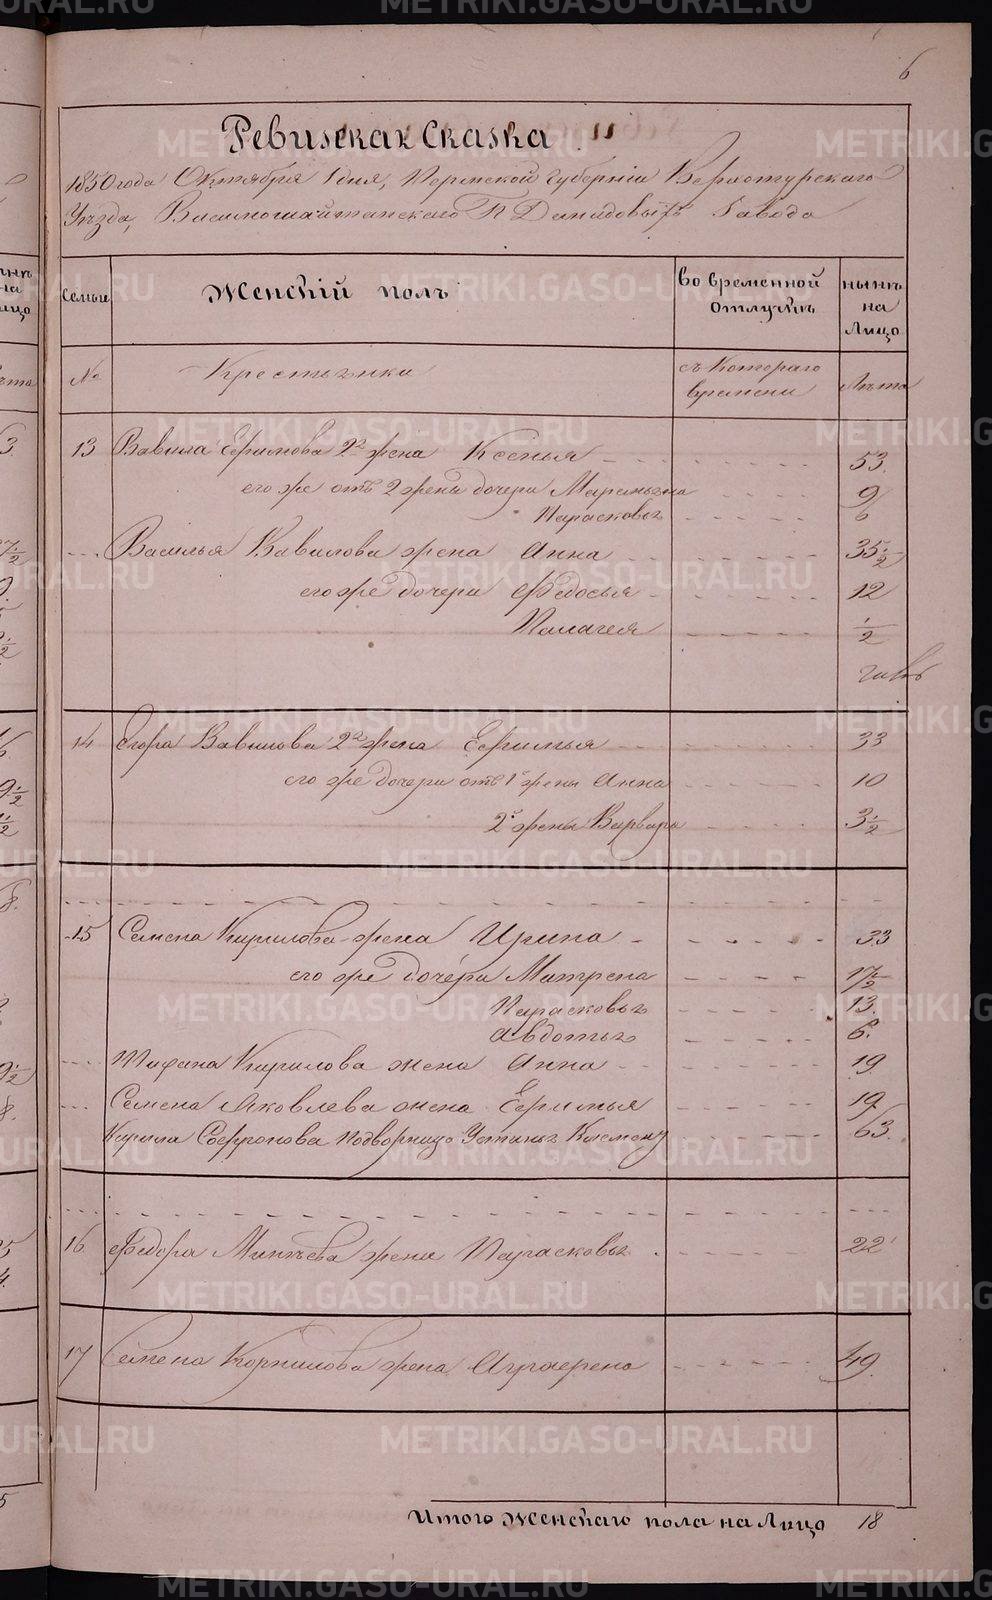 6
Ревизская Сказка.
1850 года Октября 1 дня, Пермской Губерніи Верхотурскаго
Уѣзда, Висимошайтанскаго П Демидовыхъ Завода
Семьи
Женскій полъ
во временной отлучкѣ
нынѣ на Лицо
№
Крестьянки
съ Котораго времени
Лѣта
13 Вавила Ефимова 2я жена Ксенья 53.
его же отъ 2 жены дочери Маремьяна 9
Парасковья 6
Василья Вавилова жена Анна 35 1/2
его же дочери Федосья 12
Палагея 1/2
14 Егора Вавилова 2я жена Ефимья 33
его же дочери отъ 1й жены Анна 10
2й жены Варвара 3 1/2
15 Семена Кирилова жена Ирина 33
его же дочери Матрена 17 1/2
Парасковья 13.
Авдотья 6.
Кирилова жена Анна 19
Семена Яковлева жена Ефимья 19
Кирила Софронова 63.
16 Федора жена Парасковья 22
17 Семена Корнилова жена Аграфена 49
Итого Женскаго пола на Лицо 18
METRIKI.GASO-URAL.RU